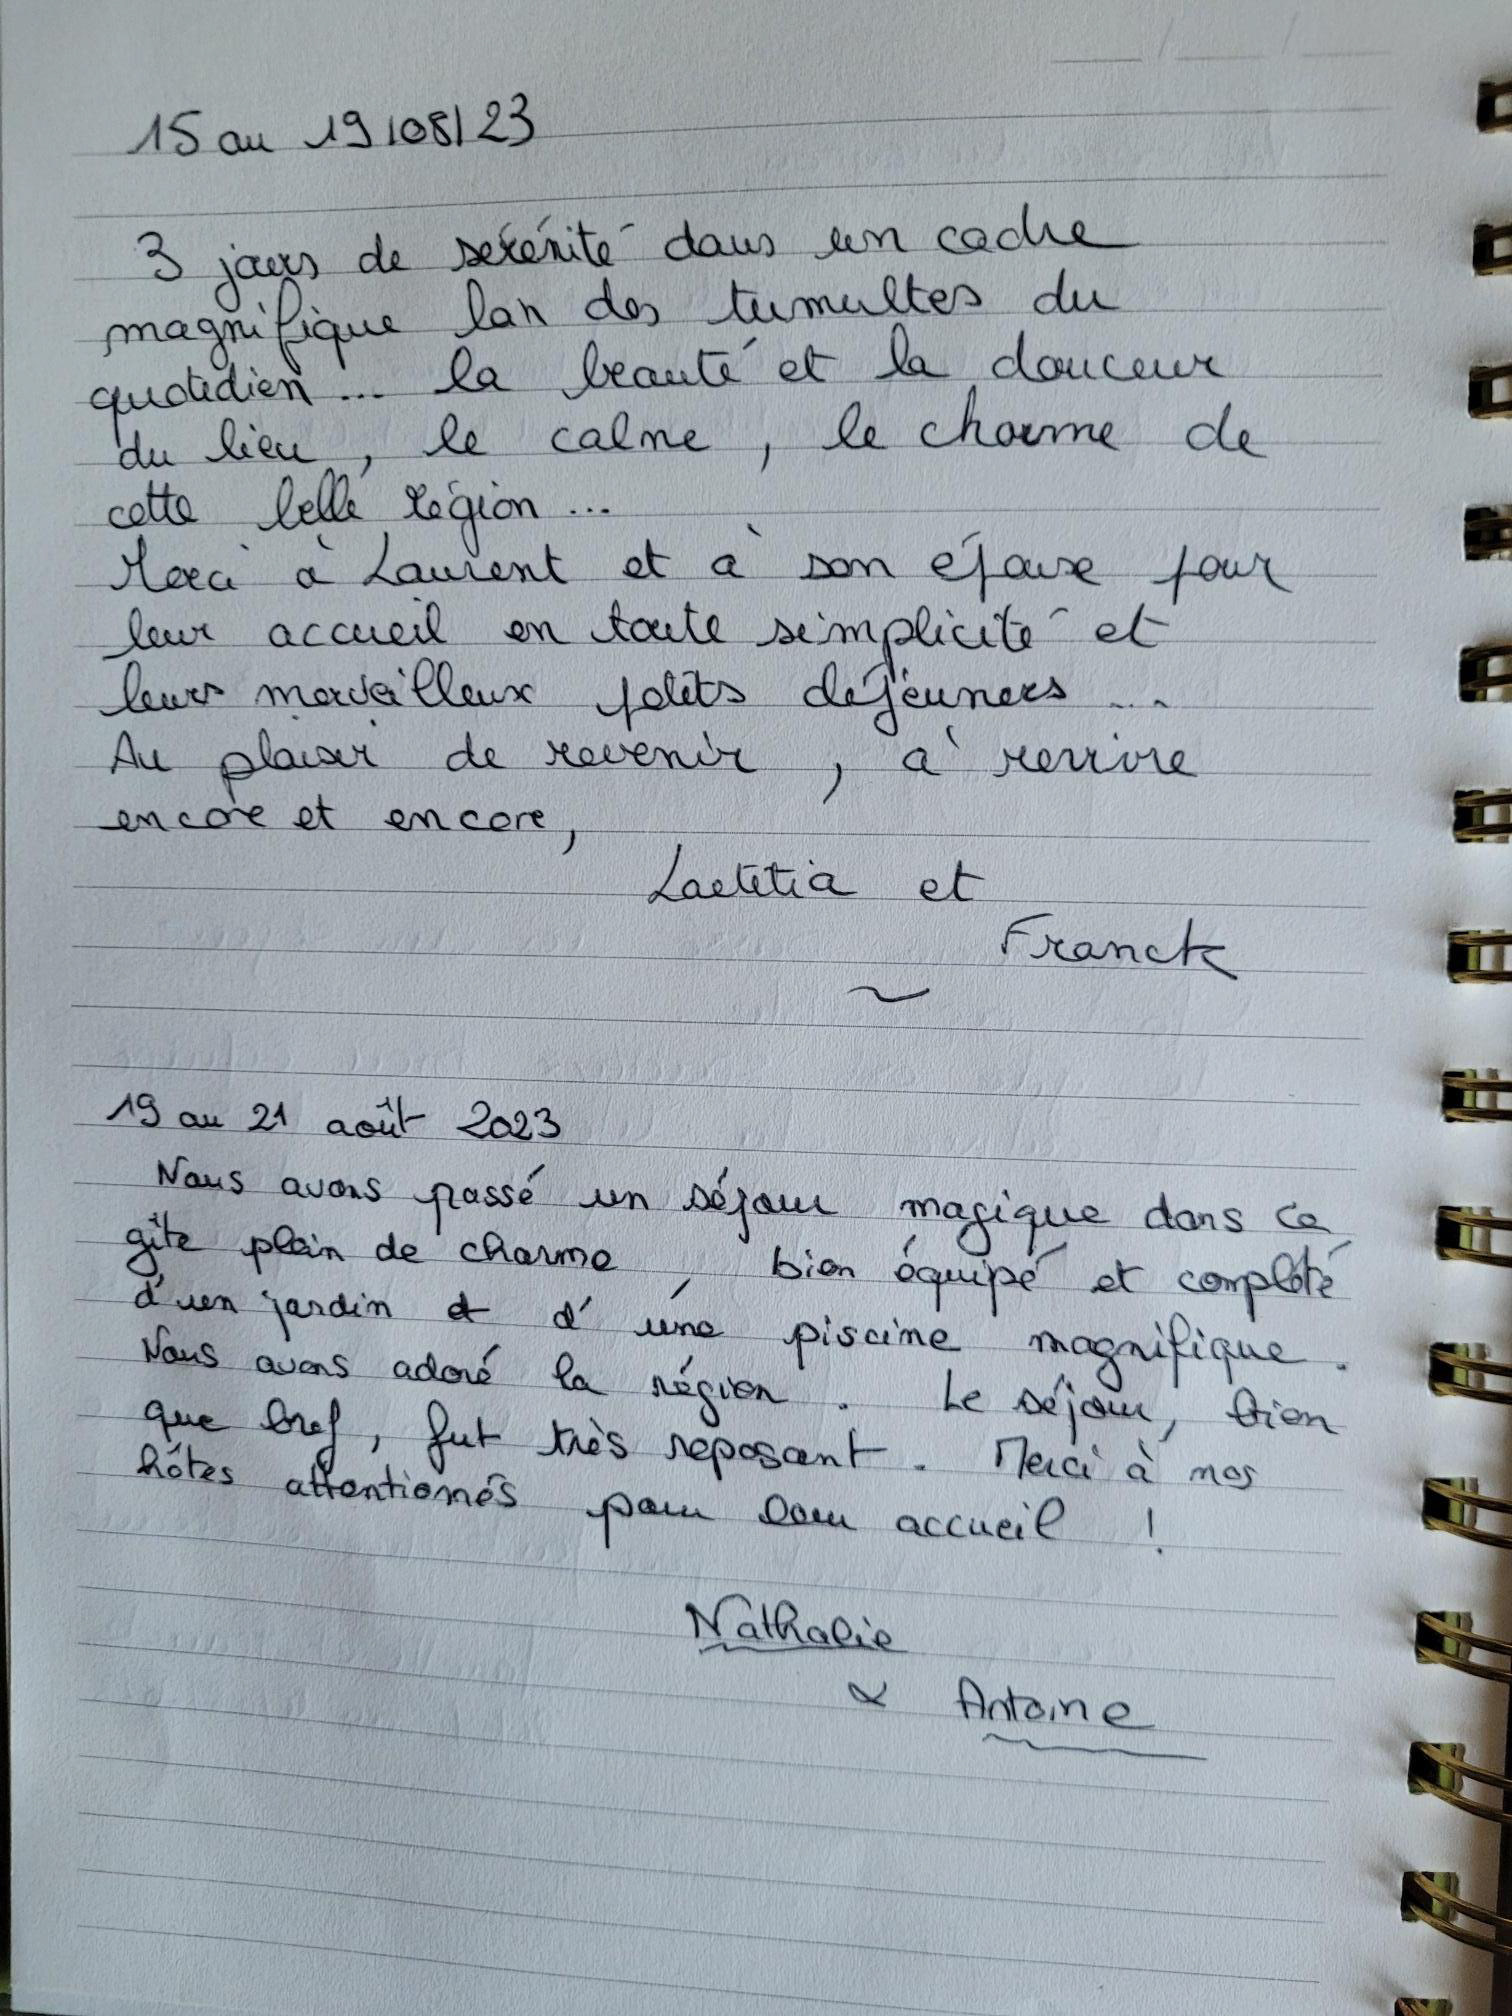 15 au 19/08/23
3 jours de sérénité dans un cadre
magnifique loin des tumultes du
quotidien... la beauté et la douceur
du lieu, le calme, le charme de
cette belle région...
Merci à Laurent et à son épouse pour
leur accueil en toute simplicité et
leurs merveilleux petits déjeuners...
Au plaisir de revenir, à revivre
encore et encore,
Laetitia et
Franck
19 au 21 août 2023
Nous avons passé un séjour magique dans ce
gîte plein de charme, bien équipé et complété
d'un jardin et d'une piscine magnifique.
Nous avons adoré la région. Le séjour, bien
que bref, fut très reposant. Merci à nos
hôtes attentionnés pour leur accueil !
Nathalie
& Antoine